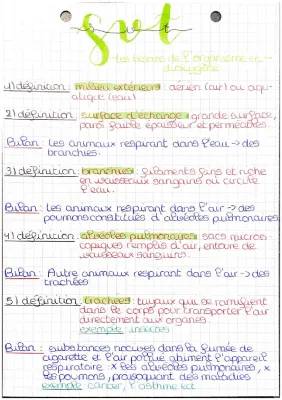 svt
Les besoins de l'organisme en
dioxygène
1) définition : milieu extérieur : aérien (air) ou aqu-
atique (eau)
2) définition : surface d'échange : grande surface,
paroi faible épaisseur et perméable
Bilan : Les animaux respirant dans l'eau → des
branchies.
3) définition : branchies : filaments fins et riche
en vaisseaux sanguins où circule
l'eau.
Bilan : Les animaux respirant dans l'air → des
poumons constitués d'alvéoles pulmonaires.
4) définition : alvéoles pulmonaires sacs micros
copiques remplis d'air, entouré de
vaisseaux sanguins.
Bilan : Autre animaux respirant dans l'air → des
trachées
5) définition : trachées : tuyaux que se ramifient
dans le corps pour transporter l'air
directement aux organes.
exemple : insectes
Bilan : substances nocives dans la fumée de
cigarette et l'air pollué abîment l'appareil
respiratoire : x les alvéoles pulmonaires, x
les poumons, provoquant des maladies
exemple cancer, l'asthme ect